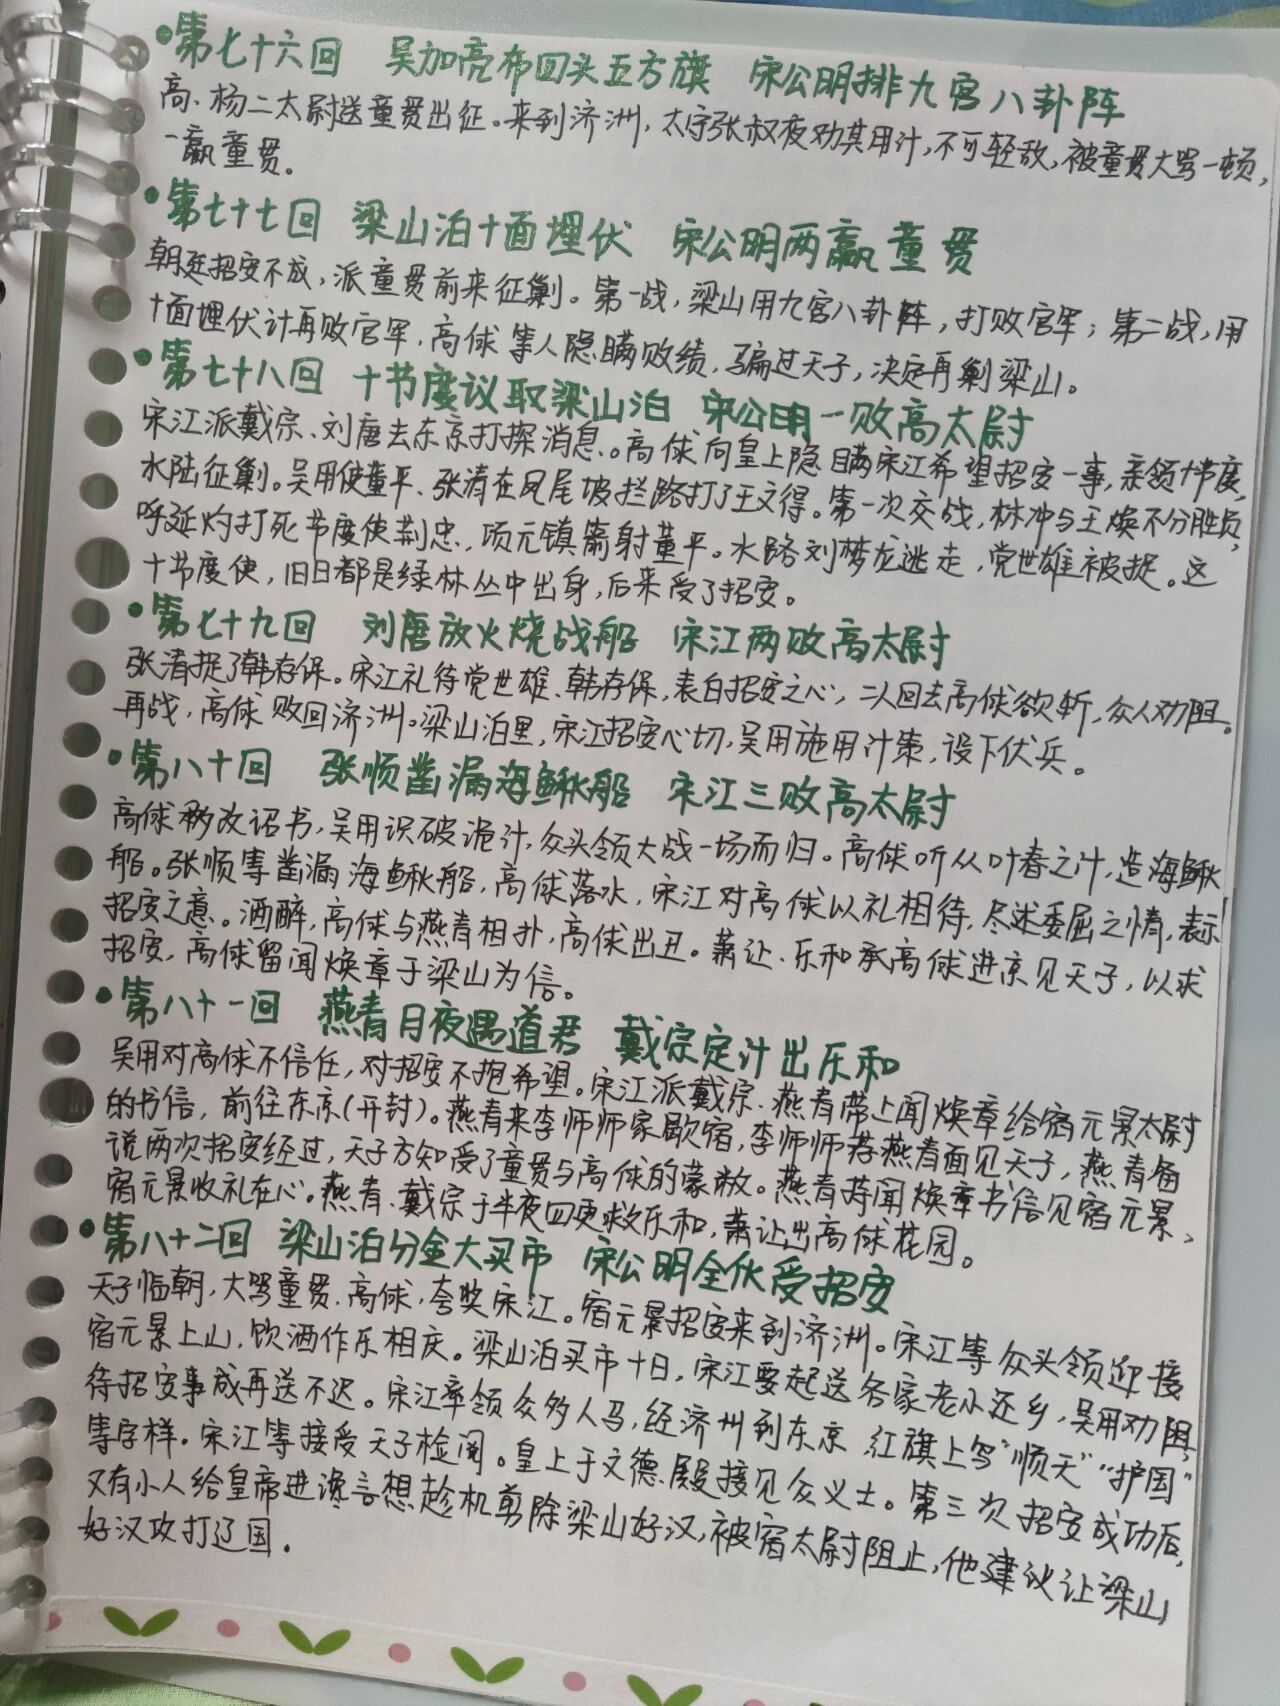 •第七十六回 吴加亮布四头五方旗 宋公明排九宫八卦阵
高、杨二太尉送童贯出征。来到济洲,太守张叔夜劝其用计,不可轻敌,被童贯大骂一顿,
一赢童贯。
•第七十七回 梁山泊十面埋伏 宋公明两赢童贯
朝廷招安不成,派童贯前来征剿。第一战,梁山用九宫八卦阵,打败官军;第二战,用
十面埋伏计再败官军,高俅等人隐瞒败绩,骗过天子,决定再剿梁山。
•第七十八回 十节度议取梁山泊 宋公明一败高太尉
宋江派戴宗、刘唐去东京打探消息。高俅向皇上隐瞒宋江希望招安一事,亲领十节度,
水陆征剿。吴用使董平、张清在凤尾坡拦路打了王文得。第一次交战,林冲与王焕不分胜负,
呼延灼打死节度使荆忠,项元镇箭射董平。水路刘梦龙逃走,党世雄被捉。这
十节度使,旧日都是绿林丛中出身,后来受了招安。
•第七十九回 刘唐放火烧战船 宋江两败高太尉
张清捉了韩存保。宋江礼待党世雄、韩存保,表白招安之心,二人回去高俅欲斩,众人劝阻。
再战,高俅败回济洲。梁山泊里,宋江招安心切,吴用施用计策,设下伏兵。
•第八十回 张顺凿漏海鳅船 宋江三败高太尉
高俅移改诏书,吴用识破诡计,众头领大战一场而归。高俅听从叶春之计,造海鳅
船。张顺等凿漏海鳅船,高俅落水,宋江对高俅以礼相待,尽述委屈之情,表示
招安之意。酒醉,高俅与燕青相扑,高俅出丑。萧让、乐和承高俅进京见天子,以求
招安,高俅留闻焕章于梁山为信。
•第八十一回 燕青月夜遇道君 戴宗定计出乐和
吴用对高俅不信任,对招安不抱希望。宋江派戴宗、燕青带上闻焕章给宿元景太尉
的书信,前往东京(开封)。燕青来李师师家歇宿,李师师荐燕青面见天子,燕青备
说两次招安经过,天子方知受了童贯与高俅的蒙敝。燕青持闻焕章书信见宿元景,
宿元景收礼在心。燕青、戴宗于半夜四更救乐和,萧让出高俅花园。
•第八十二回 梁山泊分金大买市 宋公明全伙受招安
天子临朝,大骂童贯、高俅,夸奖宋江。宿元景招安来到济洲。宋江等众头领迎接
宿元景上山,饮酒作乐相庆。梁山泊买市十日,宋江要起送各家老小还乡,吴用劝阻,
待招安事成再送不迟。宋江率领众多人马,经济州到东京,红旗上写“顺天”“护国”
等字样。宋江等接受天子检阅。皇上于文德殿接见众义士。第三次招安成功后,
又有小人给皇帝进谗言想趁机剪除梁山好汉,被宿太尉阻止,他建议让梁山
好汉攻打辽国.